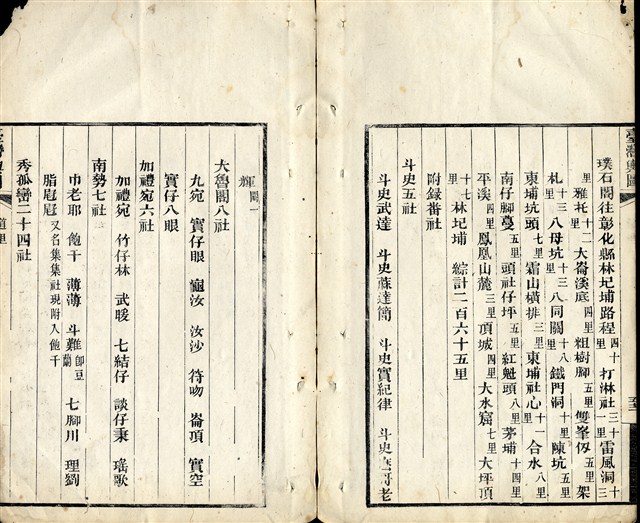 臺灣輿圖
璞石閣往彰化縣林圮埔路程
四十里打淋社三十一里雷風洞十三
里雅托十二里大崙溪底四里粗樹腳五里雙峯仞五里架
札十三里八母坑十三里八同關十八里鐵門洞十里陳坑五里
東埔坑頭七里霜山橫排三里東埔社心十一里合水八里
南仔腳蔓五里頭社仔坪五里紅魁頭八里茅埔十四里
平溪四里鳳凰山麓三里頂城四里大水窟七里大坪頂
十七里林圮埔 綜計二百六十五里
附錄番社
斗史五社
斗史武達 斗史蘇達簡 斗史實紀律 斗史 哥老
輝
大魯閣八社
九宛 實仔眼 龜汝 汝沙 符吻 崙頂 實空
實仔八眼
加禮宛六社
加禮宛 竹仔林 武暖 七結仔 談仔秉 瑤歌
南勢七社
巾老耶 飽干 薄薄 斗難 即豆蘭 七腳川 理劉
脂屘屘 又名集集社現附入飽干
秀孤巒二十四社
道里